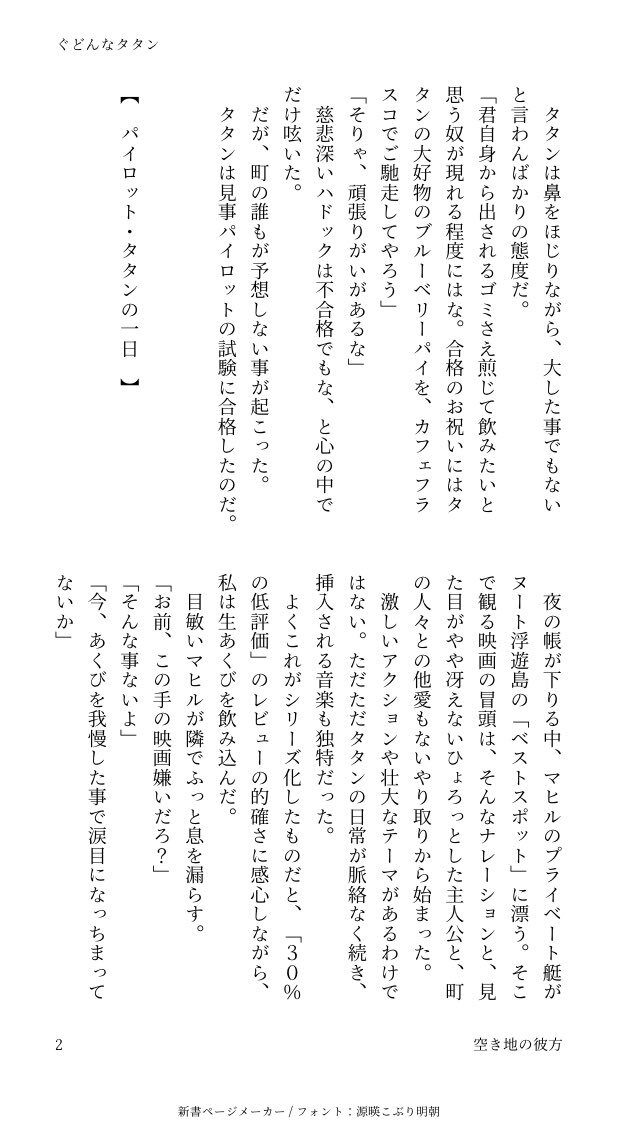 ぐどんなタタン
　タタンは鼻をほじりながら、大した事でもない
と言わんばかりの態度だ。
「君自身から出されるゴミさえ煎じて飲みたいと
思う奴が現れる程度にはな。合格のお祝いにはタ
タンの大好物のブルーベリーパイを、カフェフラ
スコでご馳走してやろう」
「そりゃ、頑張りがいがあるな」
　慈悲深いハドックは不合格でもな、と心の中で
だけ呟いた。
　だが、町の誰もが予想しない事が起こった。
　タタンは見事パイロットの試験に合格したのだ。
【　パイロット・タタンの一日　】
　夜の帳が下りる中、マヒルのプライベート艇が
ヌート浮遊島の「ベストスポット」に漂う。そこ
で観る映画の冒頭は、そんなナレーションと、見
た目がやや冴えないひょろっとした主人公と、町
の人々との他愛もないやり取りから始まった。
　激しいアクションや壮大なテーマがあるわけで
はない。ただただタタンの日常が脈絡なく続き、
挿入される音楽も独特だった。
　よくこれがシリーズ化したものだと、「３０％
の低評価」のレビューの的確さに感心しながら、
私は生あくびを飲み込んだ。
　目敏いマヒルが隣でふっと息を漏らす。
「お前、この手の映画嫌いだろ？」
「そんな事ないよ」
「今、あくびを我慢した事で涙目になっちまって
ないか」
2
空き地の彼方
新書ページメーカー / フォント：源暎こぶり明朝